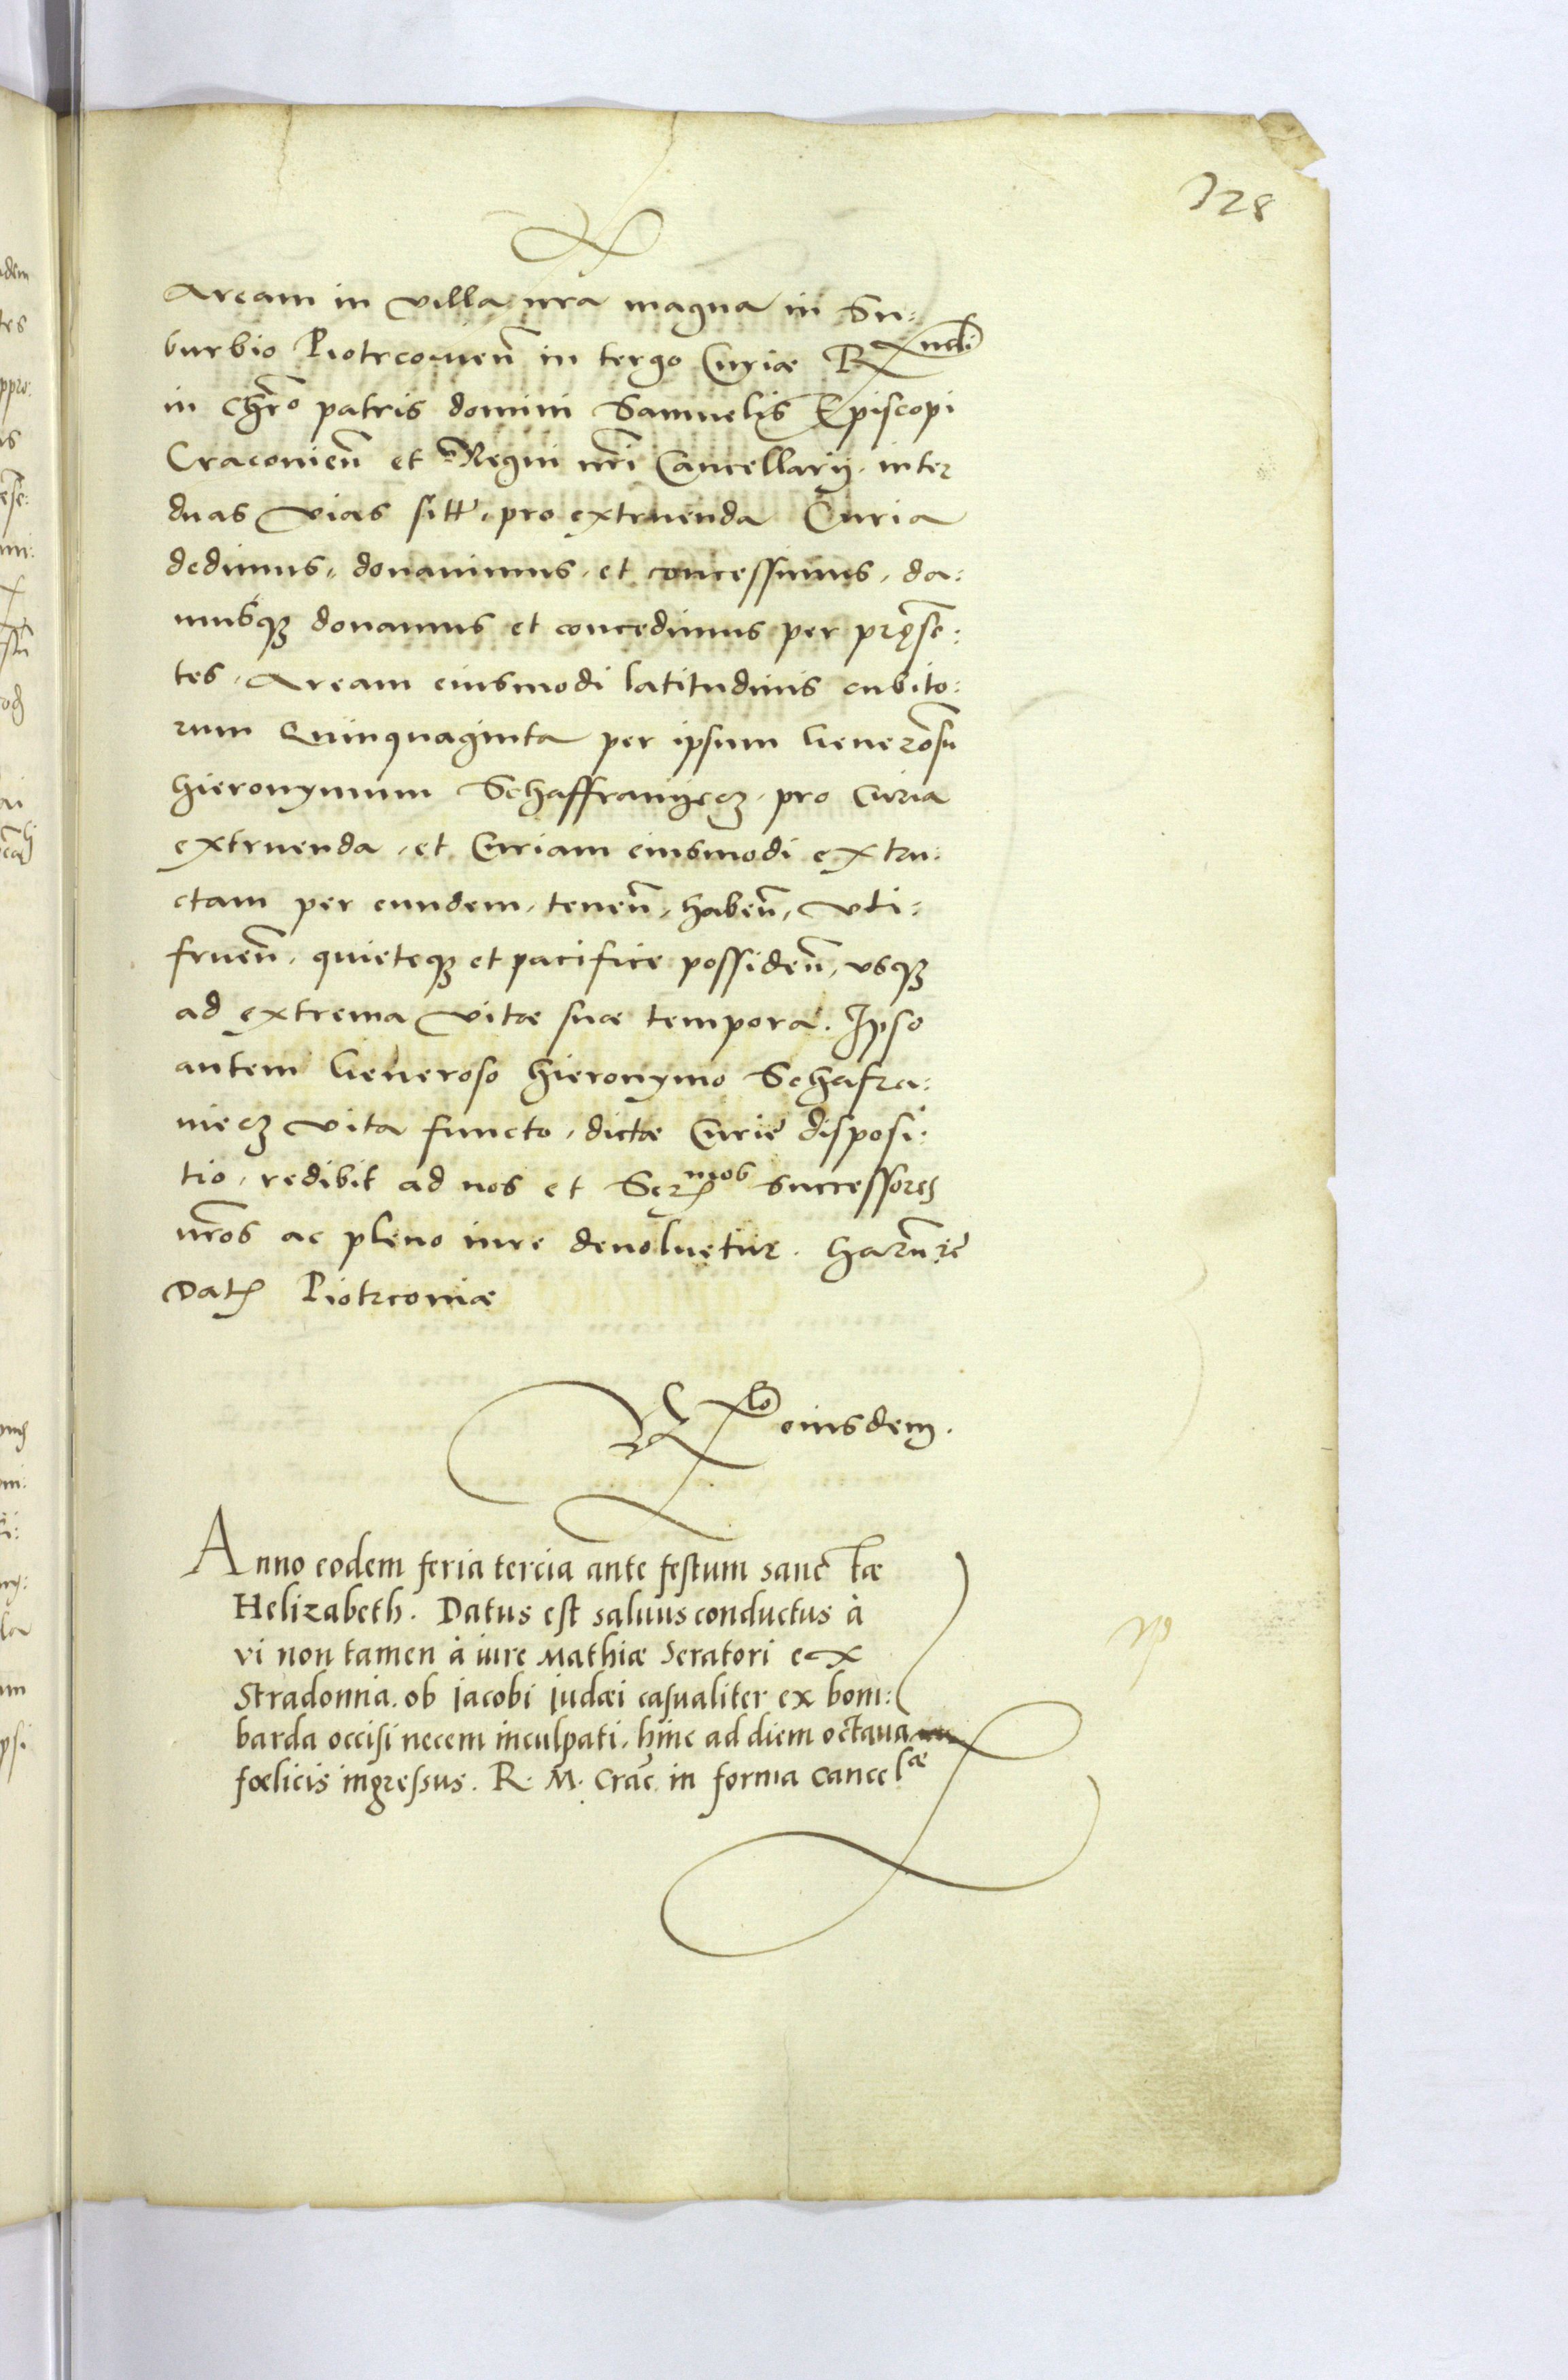 328
Aream in villa nra magna in Su:
burbio Piotrcouien̄ in tergo Curiæ Rndi
in Chr̄o patris domini Samuelis Episcopi
Cracouien̄ et Regni nr̄i Cancellarij. inter
duas vias sitt. pro extruenda Curia
dedimus, donauimus, et concessimus, da:
musq donamus et concedimus per pręse:
tes, Aream eiusmodi latitudinis cubito:
rum Quinquaginta per ipsum Generosū
Hieronymum Schaffranyecz, pro Curia
extruenda, et Curiam eiusmodi extru:
ctam per eundem, tenen̄, haben̄, vti:
fruen̄, quieteq et pacifice possiden̄, vsq
ad extrema vitæ suæ tempora. Ipso
autem Generoso Hieronymo Schafra:
niecz vita functo, dictæ Curiē disposi:
tio, redibit ad nos et Sermos Successores
nr̄os ac pleno iure deuoluetur. Harum rē
Dat Piotrcouiæ
Rlo eiusdem.
Anno eodem feria tercia ante festum sanctæ
Helizabeth. Datus est saluus conductus à
vi non tamen à iure Mathiæ Seratori ex
Stradomia. ob Jacobi judæi casualiter ex bom:
barda occisi necem inculpati, hinc ad diem octaua
fœlicis ingressus. R. M. Crac̄. in forma Cancelæ